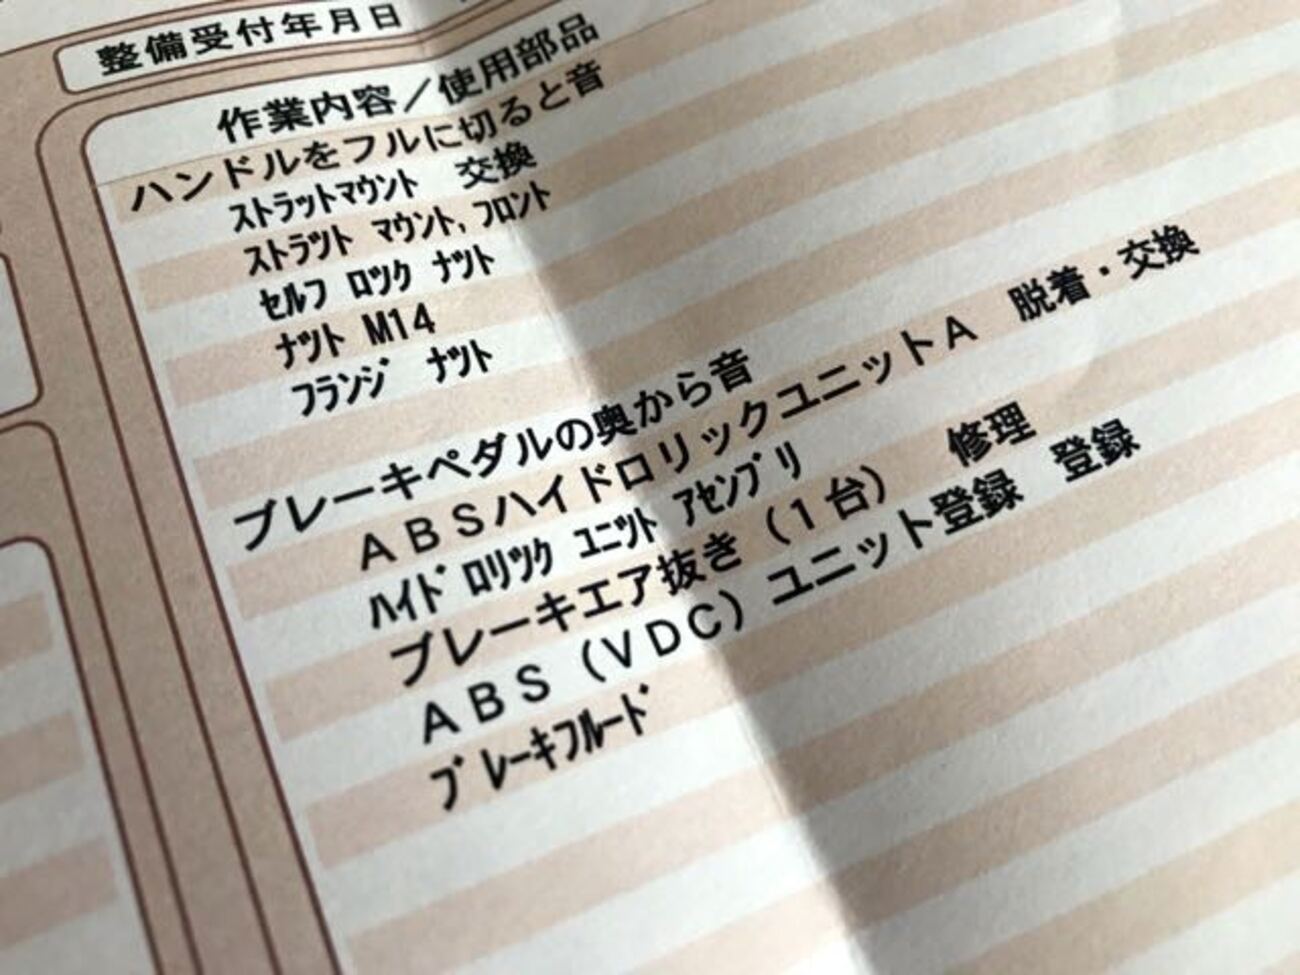 整備受付年月日
作業内容／使用部品
ハンドルをフルに切ると音
ｽﾄﾗｯﾄﾏｳﾝﾄ　交換
ｽﾄﾗﾂﾄ ﾏｳﾝﾄ,ﾌﾛﾝﾄ
ｾﾙﾌ ﾛﾂｸ ﾅﾂﾄ
ﾅﾂﾄ M14
ﾌﾗﾝｼﾞ ﾅﾂﾄ
ブレーキペダルの奥から音
ＡＢＳハイドロリックユニットＡ　脱着・交換
ﾊｲﾄﾞﾛﾘﾂｸ ﾕﾆﾂﾄ ｱｾﾝﾌﾞﾘ
ブレーキエア抜き（１台）　修理
ＡＢＳ（ＶＤＣ）ユニット登録　登録
ﾌﾞﾚｰｷﾌﾙｰﾄﾞ